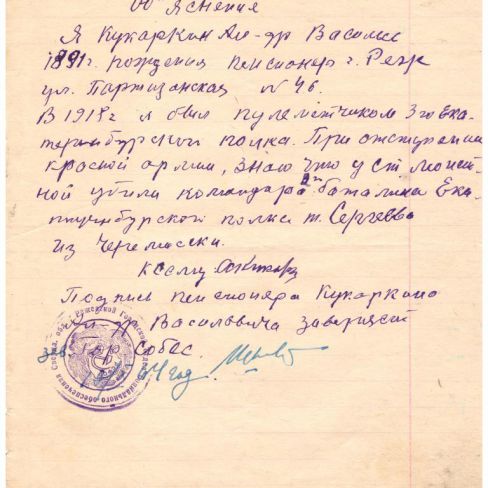 об'яснения
Я Кукаркин Ал-др Василье
1891г. рождения пенсионер г. Реж
ул. Партизанская N 46.
В 1918г я был пулеметчиком 3го Ека-
теринбурской полка. При отступлении
красной армии, знаю что у ст монет-
ной убили командара баталиона Ека-
теринбурской полка т. Сергеева
из Черемисски.
к сему
Подпись пенсионера Кукаркина
Василовича заверяет
зав. Гор Собес.
64 год.